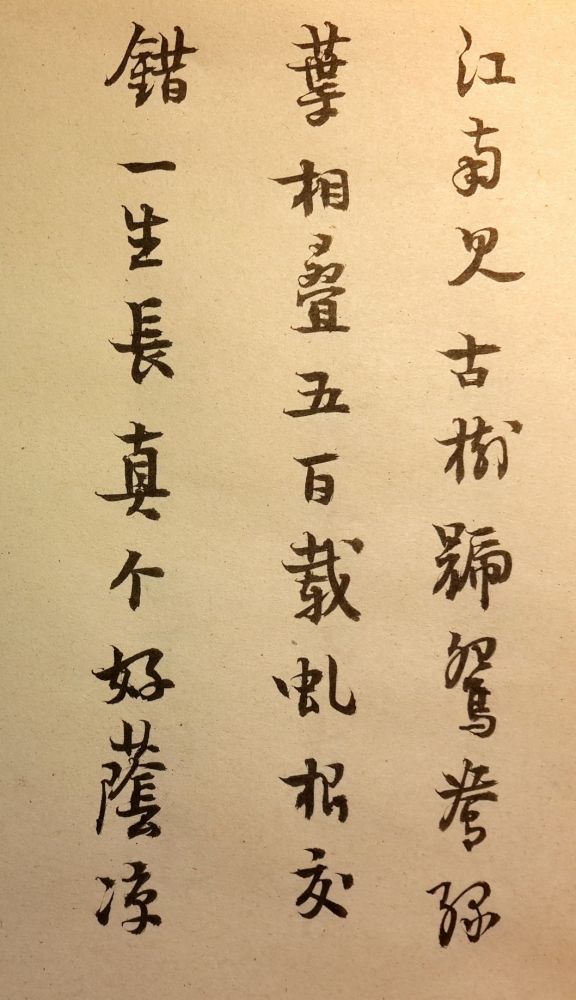 江南見古樹號鴛鴦綠
葉相疊五百載虬根交
錯一生長真个好蔭凉